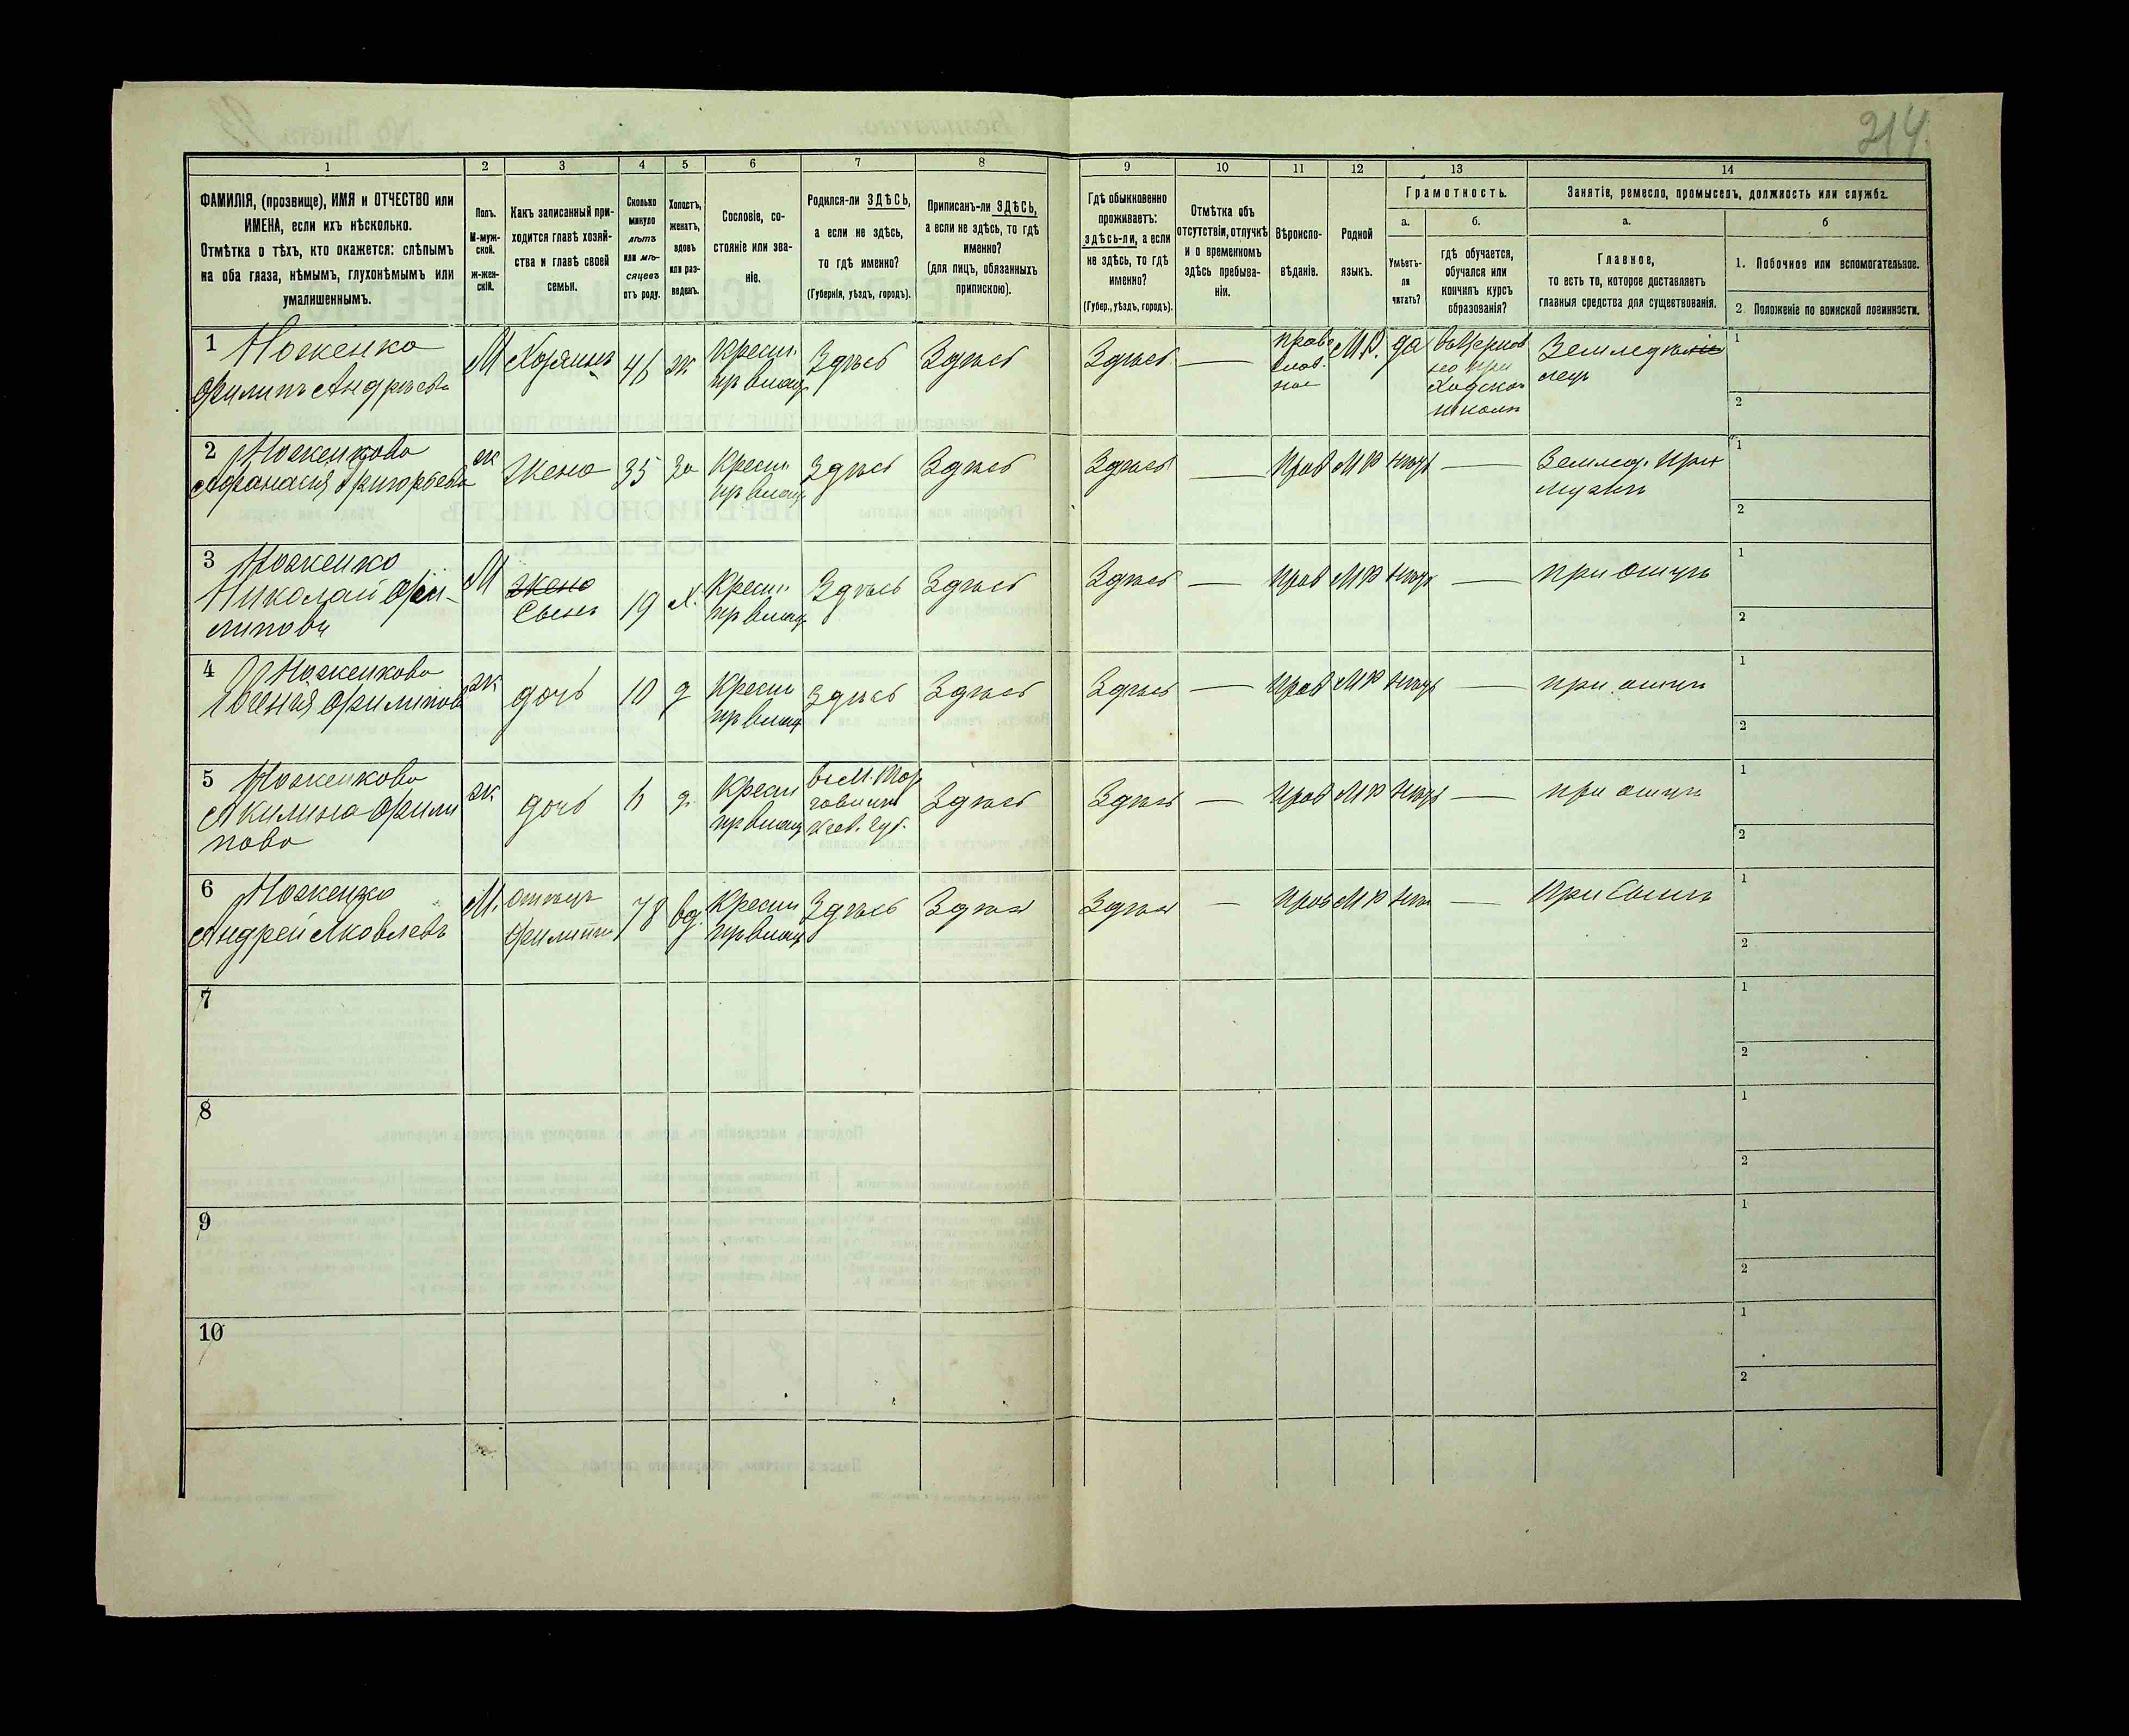 214
1 2 3 4 5 6 7 8 9 10 11 12 13 14
ФАМИЛІЯ, (прозвище), ИМЯ и ОТЧЕСТВО или
ИМЕНА, если ихъ нѣсколько.
Отмѣтка о тѣхъ, кто окажется: слѣпымъ
на оба глаза, нѣмымъ, глухонѣмымъ или
умалишеннымъ.
Полъ.
М-муж-
ской.
ж-жен-
скій.
Какъ записанный при-
ходится главѣ хозяй-
ства и главѣ своей
семьи.
Сколько
минуло
лѣтъ
или мѣ-
сяцевъ
отъ роду.
Холостъ,
женатъ,
вдовъ
или раз-
веденъ.
Сословіе, со-
стояніе или зва-
ніе.
Родился-ли ЗДѢСЬ,
а если не здѣсь,
то гдѣ именно?
(Губернія, уѣздъ, городъ).
Приписанъ-ли ЗДѢСЬ,
а если не здѣсь, то гдѣ
именно?
(для лицъ, обязанныхъ
припискою).
Гдѣ обыкновенно
проживаетъ:
здѣсь-ли, а если
не здѣсь, то гдѣ
именно?
(Губер., уѣздъ, городъ).
Отмѣтка объ
отсутствіи, отлучкѣ
и о временномъ
здѣсь пребыва-
ніи.
Вѣроиспо-
вѣданіе.
Родной
языкъ.
Грамотность.
а.
Умѣетъ-
ли
читать?
б.
гдѣ обучается,
обучался или
кончилъ курсъ
образованія?
Занятіе, ремесло, промыселъ, должность или служба.
а.
Главное,
то есть то, которое доставляетъ
главныя средства для существованія.
б
1. Побочное или вспомогательное.
2. Положеніе по воинской повинности.
1 Ноженко
Филипъ Андрѣевъ
М Хозяинъ 46 ж Крест.
пр владѣ
Здѣсь Здѣсь Здѣсь — право
слав.
ное
М.Р. да
при
ходской
школѣ
Земледѣліе
лец
1
2
2 Ноженкова
Афанасія Григорьева
ж Жена 35 За Крест.
пр владѣ
Здѣсь Здѣсь Здѣсь — Прав М Р нѣтъ — Землед. при
мужѣ
1
2
3 Ноженко
Николай Фи-
липовъ
М Жена
Сынъ
19 х. Крест.
пр владѣ
Здѣсь Здѣсь Здѣсь — Прав М Р нѣтъ — при отцѣ
1
2
4 Ноженкова
Филипова
ж дочь 10 д Крест
пр владѣ
Здѣсь Здѣсь Здѣсь — Прав М Р нѣтъ — при отцѣ
1
2
5 Ноженкова
Акилина Фили
пова
ж дочь 6 д. Крест
пр владѣ
въ М. Тор
говицѣ
Кіев. Губ.
Здѣсь Здѣсь — Прав М Р нѣтъ — при отцѣ
1
2
6 Ноженко
Андрей Яковлевъ
М. отецъ
Филипа
78 вд. Крест
пр владѣ
Здѣсь Здѣсь Здѣсь — Прав М Р нѣт — При Сынѣ
1
2
7
1
2
8
1
2
9
1
2
10
1
2